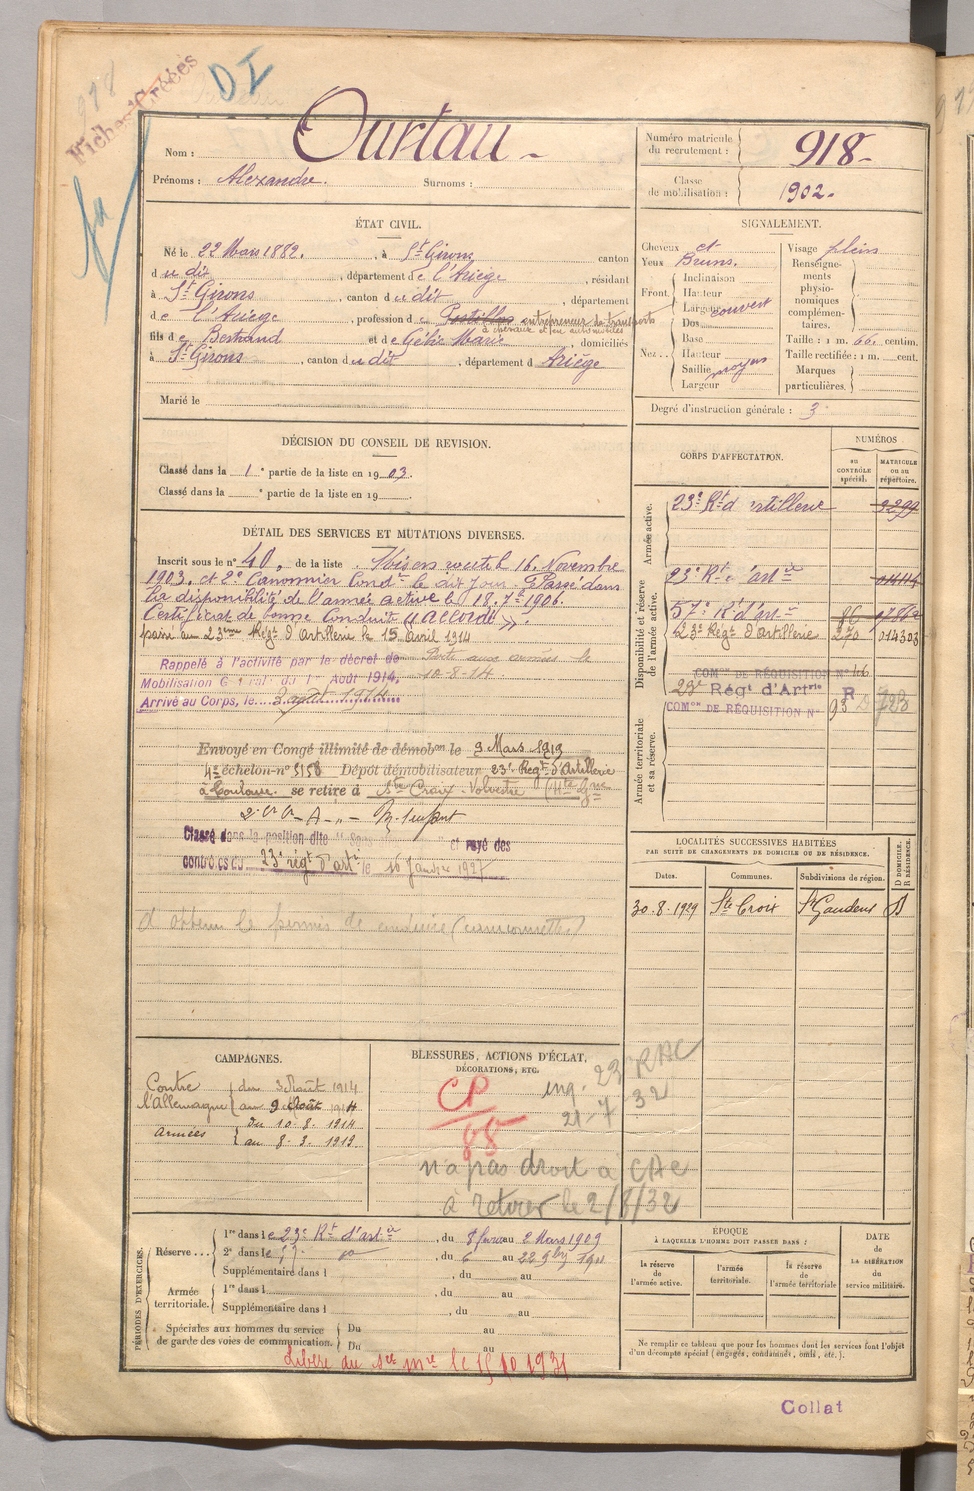 918
Fiches Créées
D I
Nom : Ourtau -
Prénoms : Alexandre. Surnoms :
Numéro matricule du recrutement : 918-
Classe de mobilisation : 1902-
ÉTAT CIVIL.
Né le 22 Mars 1882. , à St Girons canton
du dit , département de l'Ariège , résidant
à St Girons , canton du dit , département
de l'Ariège , profession de Postillon entrepreneur de transports
à chevaux et en automobiles
fils de Bertrand et de Gélis Marie , domiciliés
à St Girons , canton du dit , département d Ariège
Marié le
SIGNALEMENT.
Cheveux et
Yeux Bruns.
Front. Inclinaison
Hauteur
Largeur couvert
Nez. Dos
Base
Hauteur
Saillie moyen
Largeur
Visage plein
Renseignements physionomiques complémentaires.
Taille : 1 m. 66. centim.
Taille rectifiée : 1 m. cent.
Marques particulières.
Degré d'instruction générale : 3
DÉCISION DU CONSEIL DE REVISION.
Classé dans la 1e partie de la liste en 1903.
Classé dans la e partie de la liste en 19
DÉTAIL DES SERVICES ET MUTATIONS DIVERSES.
Inscrit sous le n° 40, de la liste
Mis en route le 16. Novembre
1903. et 2e Canonnier Condr le dit jour. Passé dans
la disponibilité de l'armée active le 18. 7bre 1906.
Certificat de bonne conduite "accordé".
passé au 23ème Régt d'Artillerie le 15 avril 1914
Rappelé à l'activité par le décret de
Mobilisation Générale du 1er Août 1914,
Arrivé au Corps, le 3 août 1914
Parti aux armées le
10-8-14.
Envoyé en Congé illimité de démobon le 9 Mars 1919
4e échelon n° 5158 Dépôt démobilisateur 23e Régt d'Artillerie
à Toulouse se retire à Ste Croix-Volvestre (Hte Gne
Classé dans la position dite "Sans et rayé des
contrôles du 23e régt d'arte le 16 Janvier 1927
d obtenu le permis de conduire (camionnette)
CORPS D'AFFECTATION.
NUMÉROS
au CONTRÔLE spécial.
MATRICULE ou au répertoire.
Armée active.
23e Rt d'artillerie 9299
Disponibilité et réserve de l'armée active.
23e Rt d'artie
57e R. d'artie 86
23e Régt d'Artillerie 270 014303
COMon DE RÉQUISITION N° 46
23e Régt d'Artrie R
COMon DE RÉQUISITION N° 93
Armée territoriale et sa réserve.
LOCALITÉS SUCCESSIVES HABITÉES
PAR SUITE DE CHANGEMENTS DE DOMICILE OU DE RÉSIDENCE.
Dates. Communes. Subdivisions de région. D DOMICILE. R RÉSIDENCE.
30.8.1929 Ste Croix St Gaudens D
CAMPAGNES.
Contre l'Allemagne du 3 Août 1914
au 9 Août 1914
armées du 10.8.1914
au 8.3.1919
BLESSURES, ACTIONS D'ÉCLAT,
DÉCORATIONS, ETC.
CP
inq. 23 RAC
21-7 32
n'a pas droit à CAC
à retirer le 2/8/32
PÉRIODES D'EXERCICES.
Réserve... 1re dans le 23e Rt d'artie , du 8 février au 2 Mars 1909
2e dans le , du 6 au 22 9bre 1911
Supplémentaire dans l , du au
Armée territoriale. 1re dans l , du au
Supplémentaire dans l , du au
Spéciales aux hommes du service de garde des voies de communication. Du au
Du au
Libéré du sce mre le 15 10 1931
ÉPOQUE
À LAQUELLE L'HOMME DOIT PASSER DANS :
la réserve de l'armée active.
l'armée territoriale.
la réserve de l'armée territoriale
DATE de LA LIBÉRATION du service militaire.
Ne remplir ce tableau que pour les hommes dont les services font l'objet
d'un décompte spécial (engagés, condamnés, omis, etc.).
Collat